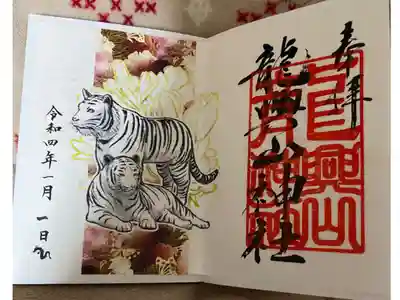 奉拝
龍興山神社
令和四年一月一日